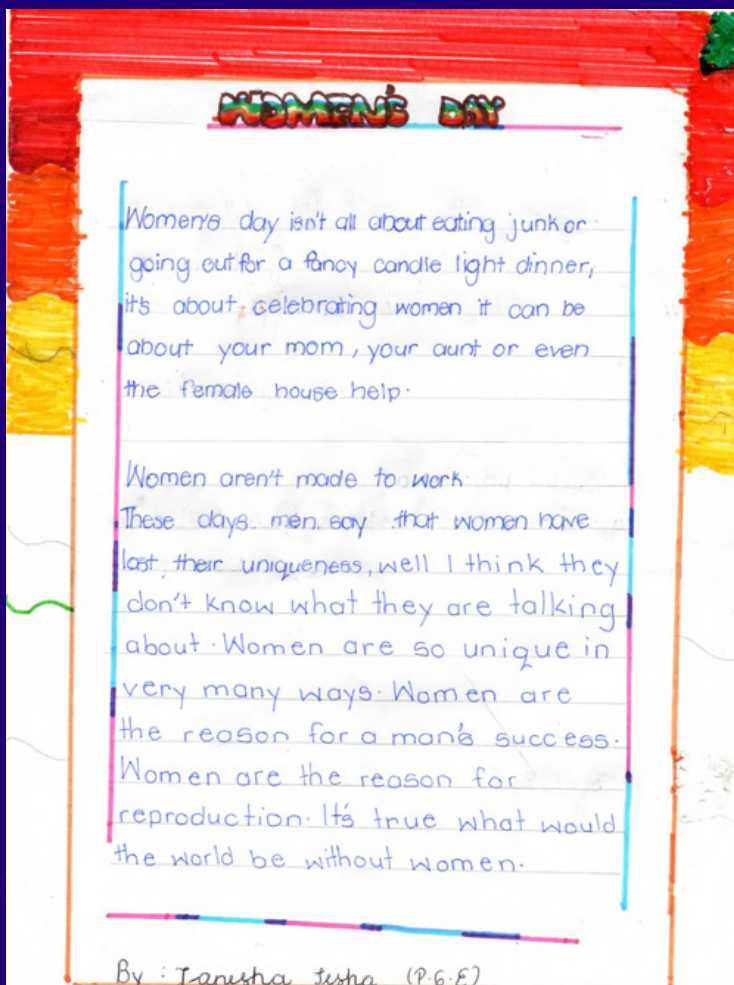 WOMEN'S DAY
Women's day isn't all about eating junk or
going out for a fancy candle light dinner,
it's about celebrating women it can be
about your mom, your aunt or even
the female house help.
Women aren't made to work.
These days men say that women have
lost their uniqueness, well I think they
don't know what they are talking
about. Women are so unique in
very many ways. Women are
the reason for a man's success.
Women are the reason for
reproduction. It's true what would
the world be without women.
By : Tanisha (P.6.E)